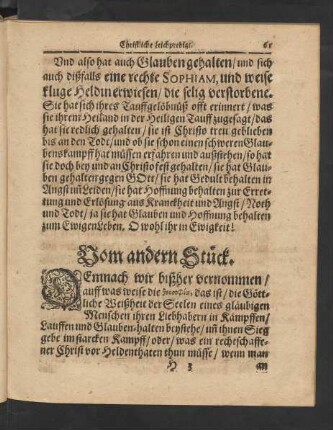 Christliche Leichpredigt. 61
Vnd also hat auch Glauben gehalten / und sich
auch dißfalls eine rechte SOPHIAM, und weise
kluge Heldin erwiesen / die selig verstorbene.
Sie hat sich ihres Tauffgelöbnüß offt erinnert / was
sie ihrem Heiland in der Heiligen Tauff zugesagt / das
hat sie redlich gehalten / sie ist Christo treu geblieben
bis an den Todt / und ob sie schon einen schweren Glau-
benskampff hat müssen erfahren und außstehen / so hat
sie doch bey und an Christo fest gehalten / sie hat Glau-
ben gehalten gegen GOtt / sie hat Gedult behalten in
Angst uñ Leiden / sie hat Hoffnung behalten zur Erret-
tung und Erlösung aus Kranckheit und Angst / Noth
und Todt / ja sie hat Glauben und Hoffnung behalten
zum Ewigen Leben. O wohl ihr in Ewigkeit!
Vom andern Stück.
DEnnach wir bißher vernommen /
auff was weise die das ist / die Gött-
liche Weißheit der Seelen eines gläubigen
Menschen ihren Liebhabern in Kämpffen /
Lauffen und Glauben-halten beystehe / uñ ihnen Sieg
gebe im starcken Kampff / oder / was ein rechtschaffe-
ner Christ vor Heldenthaten thun müsse / wenn man
H 3 an